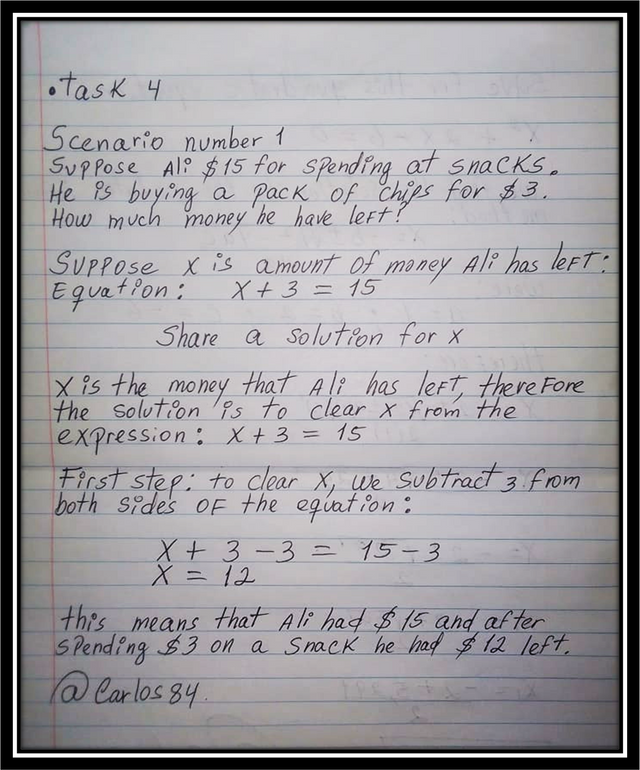 •Task 4
Scenario number 1
Suppose Ali $15 for spending at snacks.
He is buying a pack of chips for $3.
How much money he have left?
Suppose x is amount of money Ali has left:
Equation: x + 3 = 15
Share a solution for x
X is the money that Ali has left, therefore
the solution is to clear x from the
expression: x + 3 = 15
First step: to clear x, we subtract 3 from
both sides of the equation:
x + 3 - 3 = 15 - 3
x = 12
this means that Ali had $15 and after
spending $3 on a snack he had $12 left.
@Carlos84.